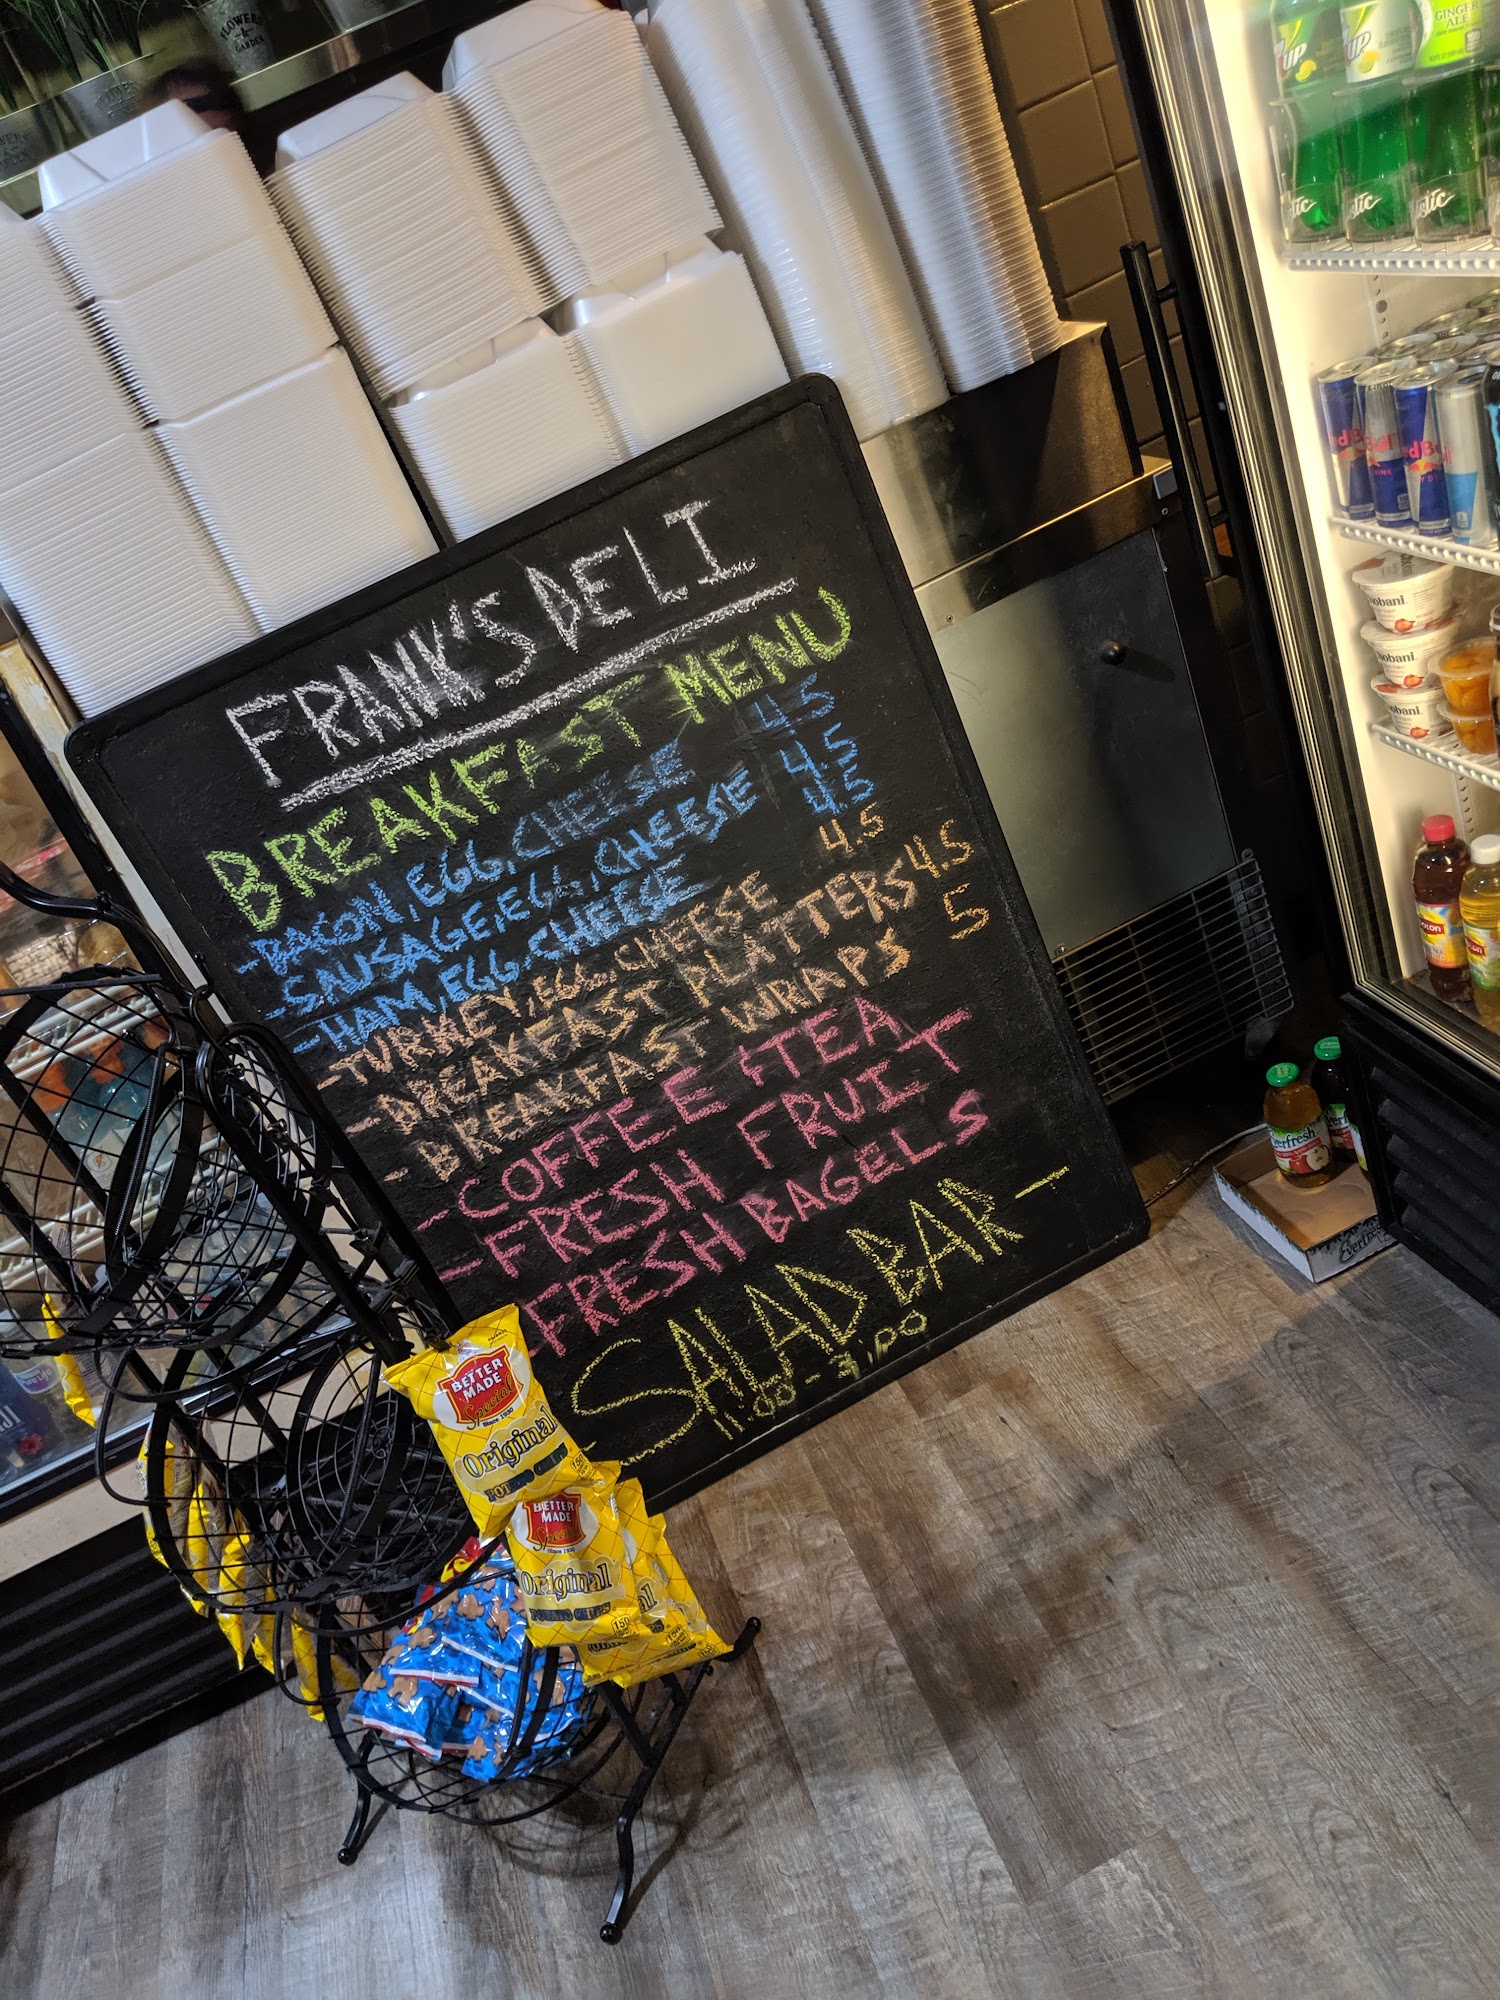 FRANK'S DELI
BREAKFAST MENU
-BACON, EGG, CHEESE 4.5
-SAUSAGE, EGG, CHEESE 4.5
-HAM, EGG, CHEESE 4.5
-TURKEY, EGG, CHEESE 4.5
-BREAKFAST PLATTERS 4.5
-BREAKFAST WRAPS 5
-COFFEE & TEA
-FRESH FRUIT
-FRESH BAGELS
-SALAD BAR-
BETTER
MADE
Special
Since 1930
Original
POTATO CHIPS
BETTER
MADE
Special
Original
POTATO CHIPS
150
FLOWERS
&
GARDEN
7UP
GINGER
ALE
Red Bull
Chobani
Chobani
Chobani
Lipton
Everfresh
Everfresh